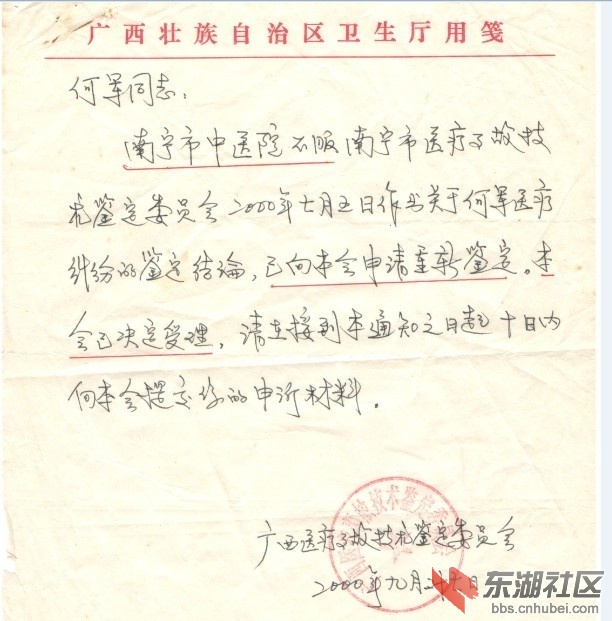 广西壮族自治区卫生厅用笺
何军同志：
南宁市中医院不服南宁市医疗事故技
术鉴定委员会2000年七月五日作出关于何军医疗
纠纷的鉴定结论，已向本会申请重新鉴定。本
会已决定受理，请在接到本通知之日起十日内
向本会提交你的申诉材料。
广西医疗事故技术鉴定委员会
2000年九月二十七日
东湖社区
bbs.cnhubei.com